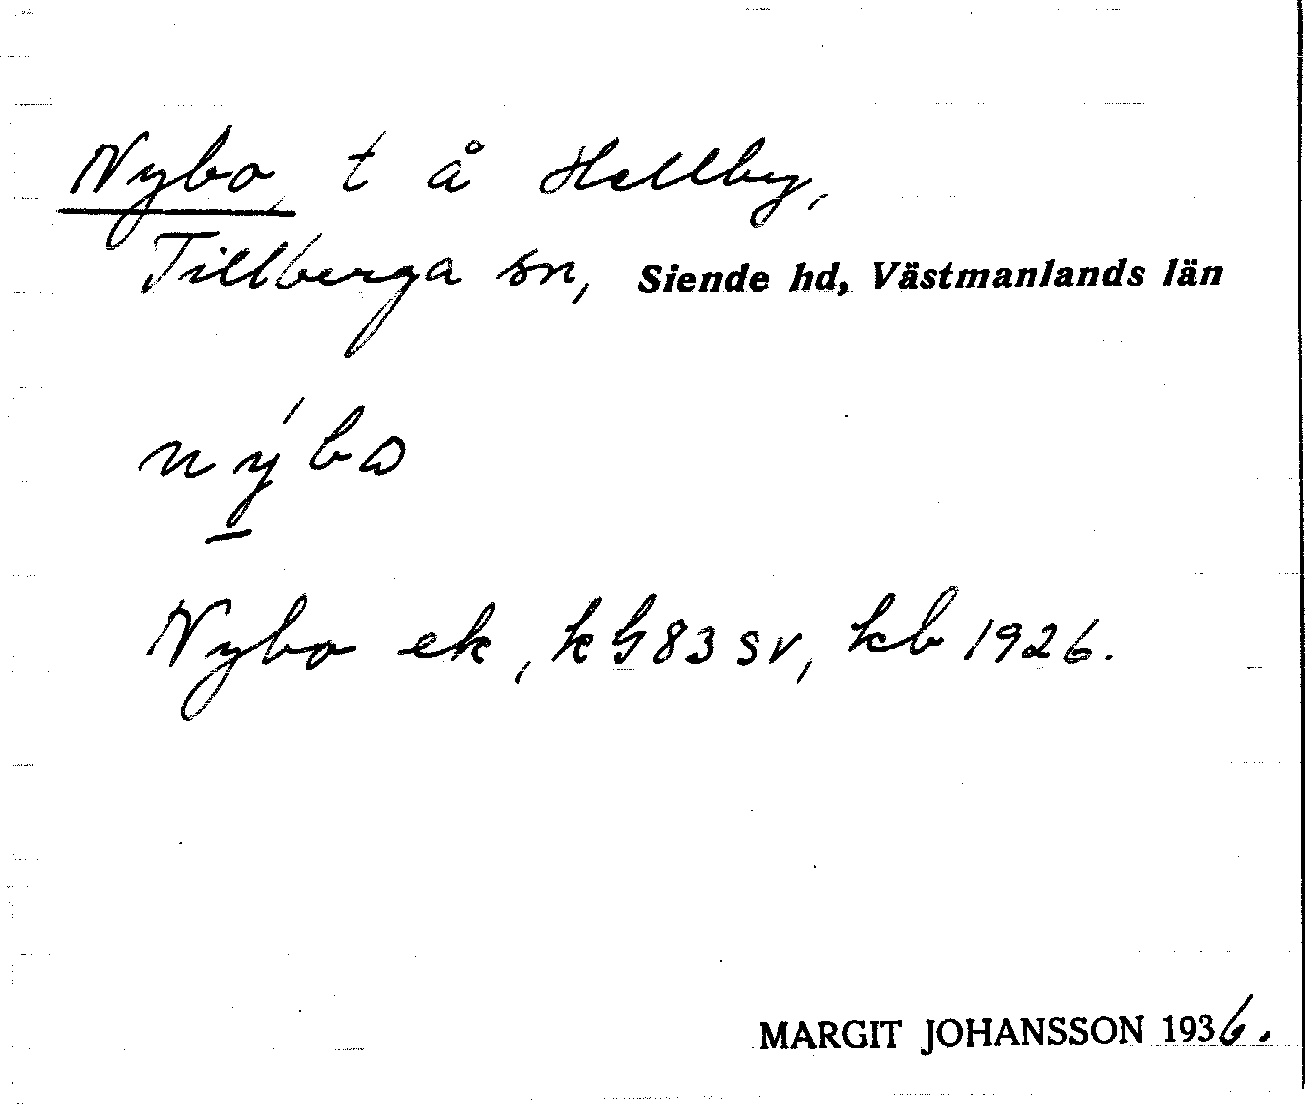 Nybo, t å Hellby,
Tillberga sn, Siende hd, Västmanlands län
nýbo
Nybo ek, k G83 SV, kb 1926.
MARGIT JOHANSSON 1936.